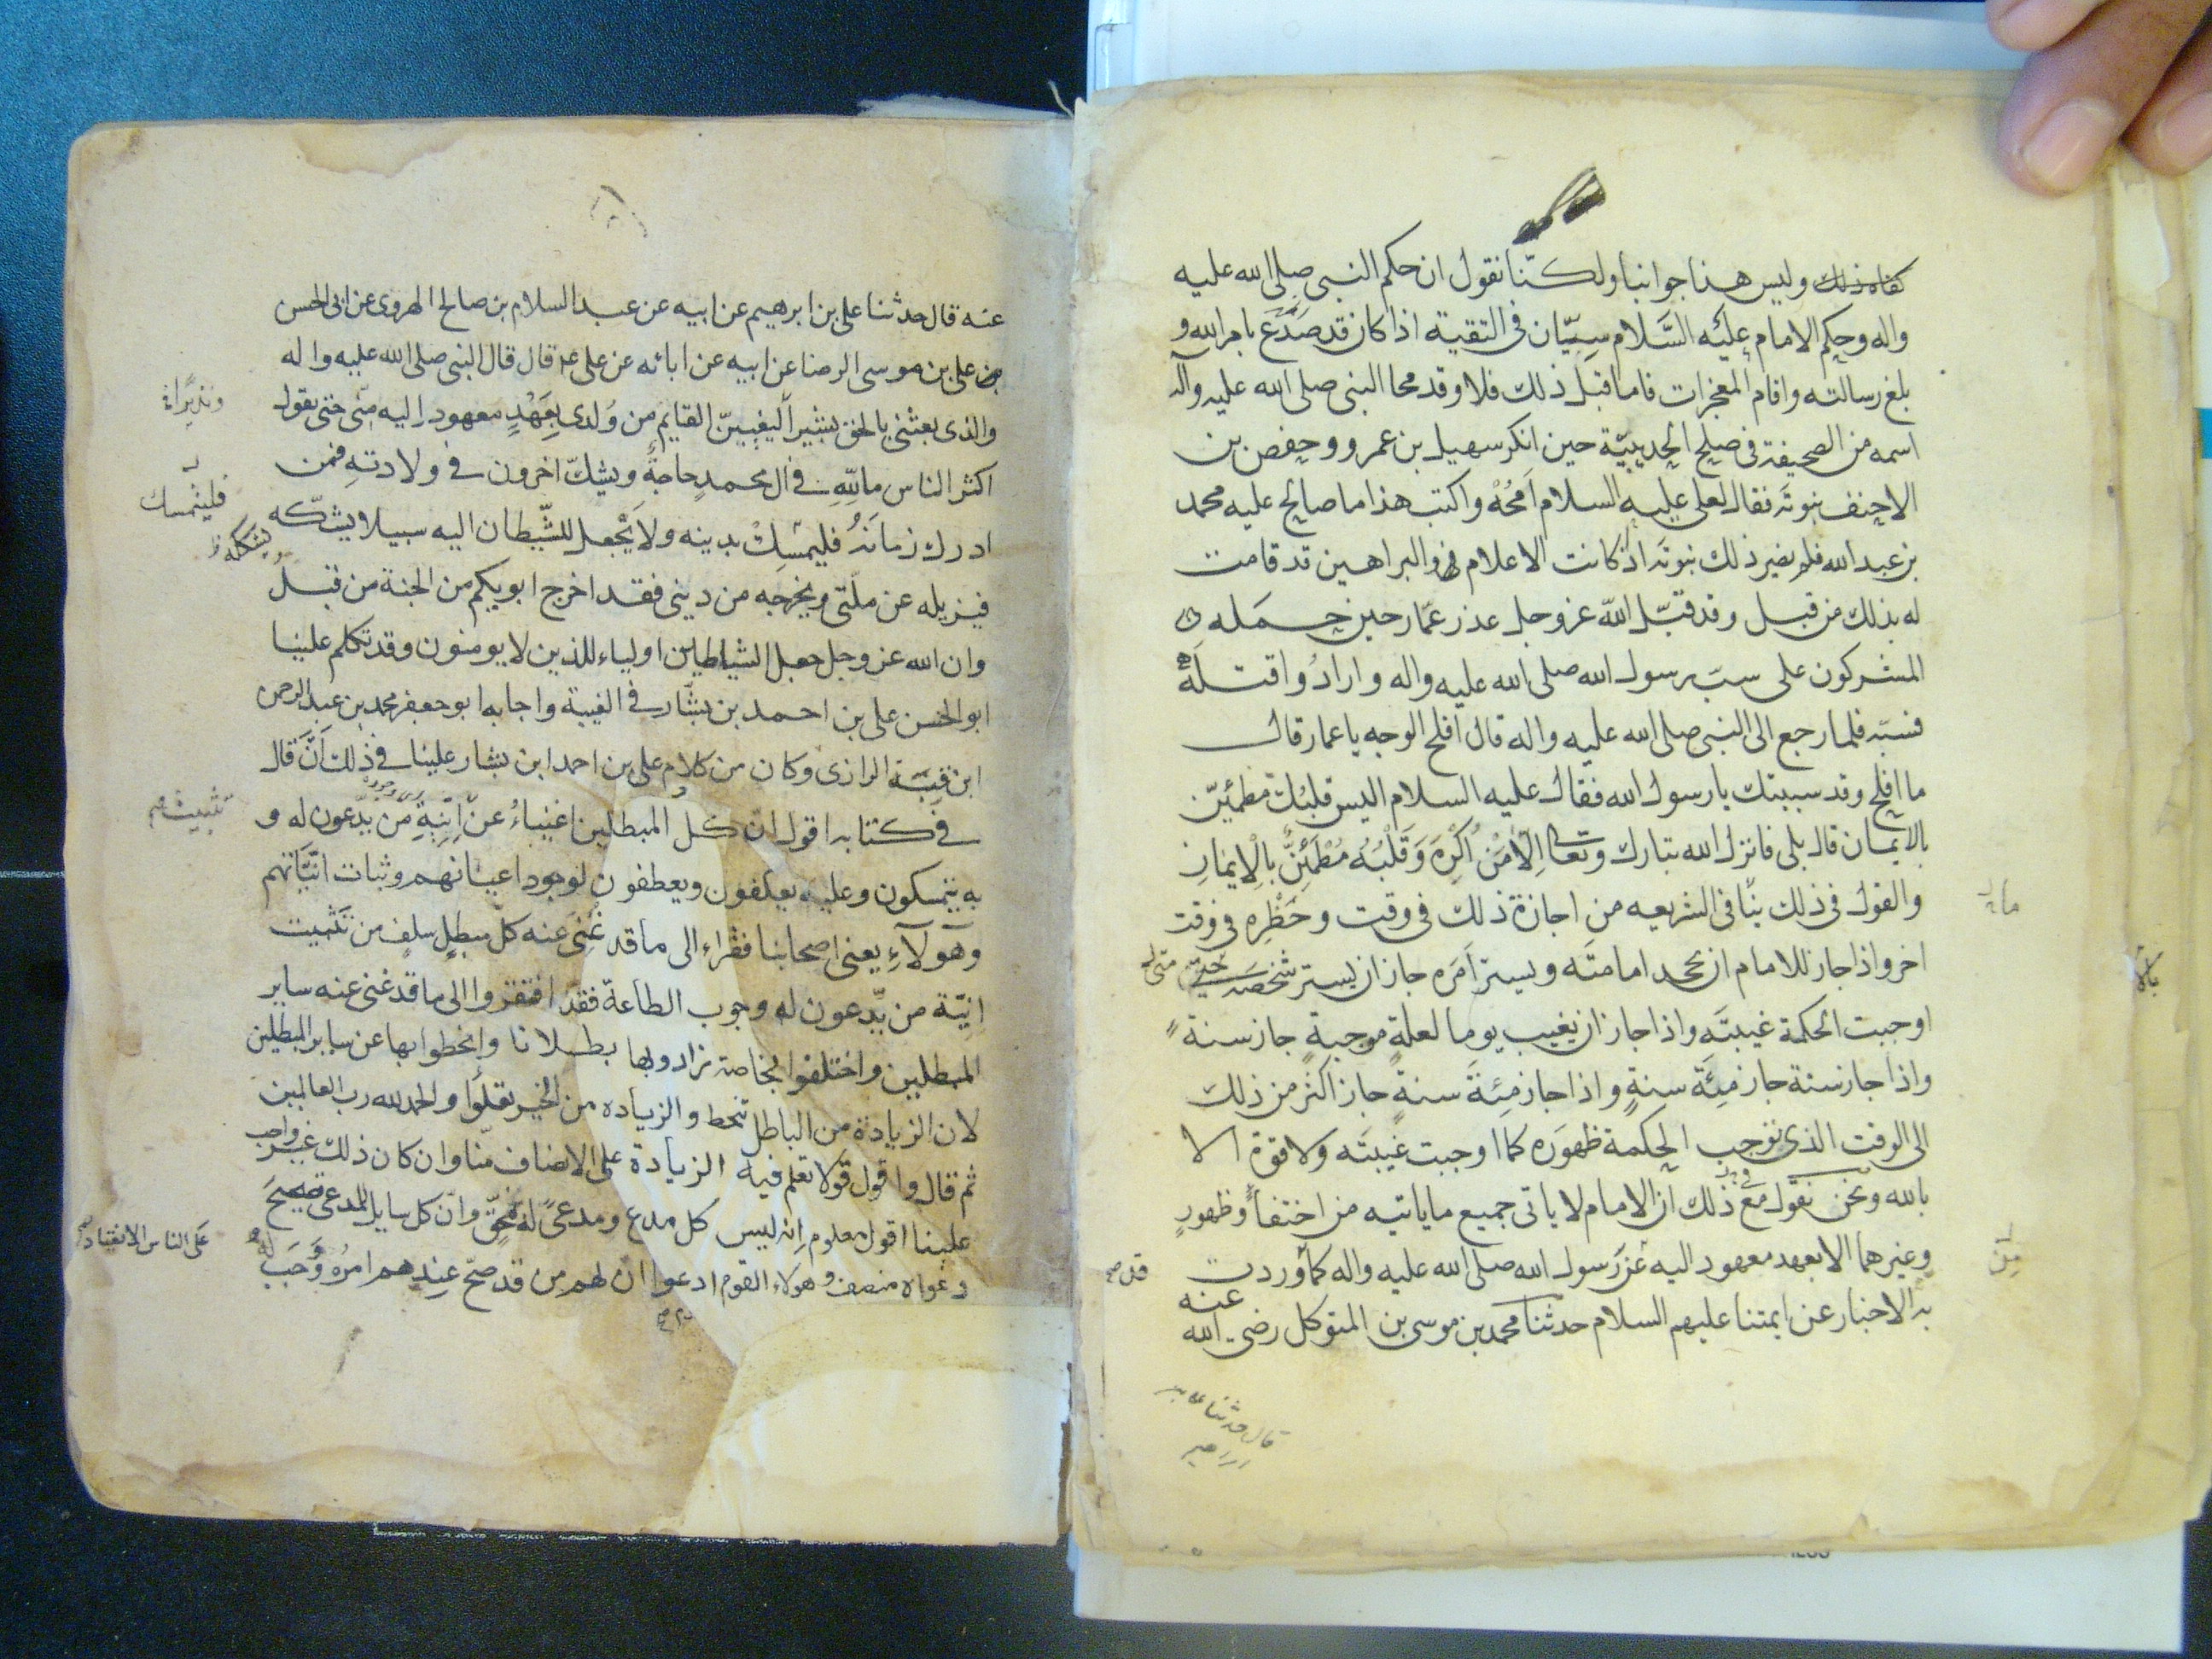 كفاه ذلك وليس هذا جوابنا ولكنّنا نقول ان حكم النبى صلى الله عليه
واله وحكم الامام عليه السَّلام سِيّان فى التقية اذا كان قد صَدَعَ بامر الله و
بلغ رسالته واقام المعجزات فاما قبل ذلك فلا وقد محا النبى صلى الله عليه وآله
اسمه من الصحيفة فى صلح الحديبيّة حين انكر سهيل بن عمرو وحفص بن
الاحنف نبوته فقال لعلى عليه السلام اَمحُهُ واكتب هذا ما صالح عليه محمد
بن عبد الله فلم يضر ذلك نبوته اذ كانت الاعلام فى والبراهين قد قامت
له بذلك من قبل وقد قبّل اللّه عز وجل عذر عمّار حين حمله
المشركون على سبّ رسول الله صلى الله عليه واله وارادُوا قتله
فسبّه فلما رجع الى النبى صلى الله عليه واله قال افلح الوجه يا عمار قال
ما افلح وقد سببتك يا رسول الله فقال عليه السلام اليس قلبُك مطمئِنّ
بالايمان قال بلى فانزل الله تبارك وتعالى اِلّا مَنْ اُكْرِهَ وَقَلْبُهُ مُطْمَئِنٌّ بِالْاِيمَانِ
والقول فى ذلك ينافى الشريعه من اجازة ذلك فى وقت وحَظْرِه فى وقت
اخر واذا جاز للامام ان يجحد امامتَه ويستر اَمَره جاز ان يستر شخصَه متى
اوجبت الحكمة غيبتَه واذا جاز ان يغيب يوما لعلةٍ موجبةٍ جاز سنة
واذا جاز سنة جاز مِئَة سنةٍ واذا جاز مِئَةَ سنةٍ جاز اكثر من ذلك
الى الوقت الذى توجب الحكمة ظهورَه كما اوجبت غيبتَه ولا قوة الا
بالله ونحن نقول مع ذلك ان الامام لا ياتى جميع ما ياتيه من اختفاءٍ وظهورٍ
وغيرهما الا بعهد معهود اليه عن رسول الله صلى الله عليه واله كما وردت
قد صح
به الاخبار عن ايمتنا عليهم السلام حدثنا محمد بن موسى بن المتوكل رضى الله عنه
قال حدثنا على بن
ابراهيم
عنه قال حدثنا على بن ابرهيم عن ابيه عن عبد السلام بن صالح الهروى عن ابى الحسن
على بن موسى الرضا عن ابيه عن ابائه عن على قال قال النبى صلى الله عليه واله
والذى بعثنى بالحق بشيراً ليغيبنّ القايم من وُلدى بِعَهْدٍ معهود اليه منّى حتى يقول
ونذيراً
اكثر الناس ما لِلّهِ فى ال محمدٍ حاجةٌ ويشكّ اخرون فى ولادتهِ فمن
ادرك زمانَهُ فليمسِكْ بدينه ولا يَجْعل للشّيطان اليه سبيلا يشكّه
فليتمسك
بشكه ظ
فيزيله عن ملّتى ويخرجه من دينى فقد اخرج ابويكم من الجنة من قبلُ
وان الله عز وجل جعل الشياطين اولياء للذين لا يومنون وقد تكلم علينا
ابو الحسن على بن احمد بن بشّار فى الغيبة واجابه ابو جعفر محمد بن عبد الرحمن
ابن قِبَة الرازى وكان من كلام على بن احمد ابن بشار علينا فى ذلك اَنَّه قال
فى كتابه اقول ان كل المبطلين اغنياءُ عن اِنّيةِ من يدّعون له و
تثبيت صح
به يتمسكون وعليه يعكفون ويعطفون لوجود اعيانهم وثبات انّيّاتهم
وهَولآءِ يعنى اصحابنا فقراء الى ما قد غَنِىَ عنه كل مبطلٍ سلفٍ من تَثبيت
اِنِيّة من يدّعون له وجوب الطاعة فقد افتقروا الى ما قد غنى عنه ساير
المبطلين واختلفوا بخاصة زادوا بها بطلانا وانحطوا بها عن ساير المبطلين
لان الزيادة من الباطل تحط والزيادة من الخير تعلُوا والحمد لله رب العالمين
ثم قال واقول قولا تعلم فيه الزيادة على الانصاف منّا وان كان ذلك غير واجب
علينا اقول معلوم انه ليس كل مدع ومدعىً له بمحقّ وانّ كل سايل لمدعى تصحيحَ
دعواه منصف وهولاء القوم ادعوا ان لهم من قد صحّ عندهم امرُه وَوَجَبَ له
على الناس الانقياد